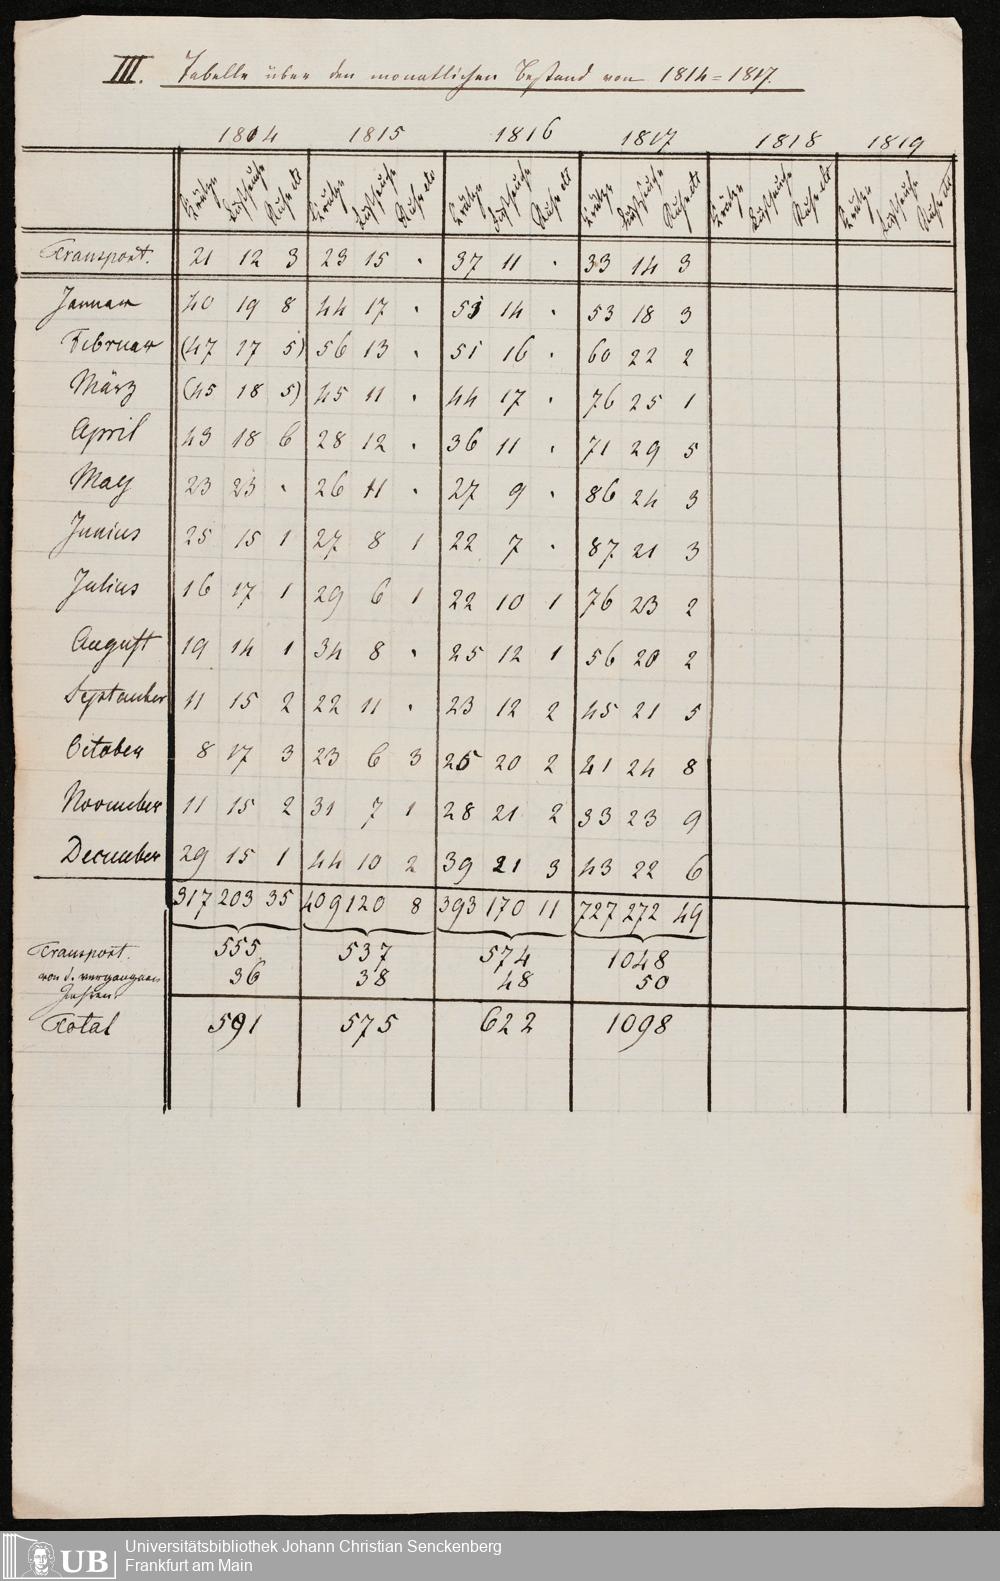 III. Tabelle über den monatlichen Bestand von 1814=1817.
1814 1815 1816 1817 1818 1819
Krätze Lustseuche Ruhr etc Krätze Lustseuche Ruhr etc Krätze Lustseuche Ruhr etc Krätze Lustseuche Ruhr etc Krätze Lustseuche Ruhr etc Krätze Lustseuche Ruhr etc
Transport. 21 12 3 23 15 . 37 11 . 33 14 3
Januar 40 19 8 44 17 . 53 14 . 53 18 3
Februar (47 17 5) 56 13 . 51 16 . 60 22 2
März (45 18 5) 45 11 . 44 17 . 76 25 1
April 43 18 6 28 12 . 36 11 . 71 29 5
May 23 23 . 26 11 . 27 9 . 86 24 3
Junius 25 15 1 27 8 1 22 7 . 87 21 3
Julius 16 17 1 29 6 1 22 10 1 76 23 2
August 19 14 1 34 8 . 25 12 1 56 20 2
September 11 15 2 22 11 . 23 12 2 45 21 5
October 8 17 3 23 6 3 25 20 2 41 24 8
November 11 15 2 31 7 1 28 21 2 33 23 9
December 29 15 1 44 10 2 39 21 3 43 22 6
317 203 35 409 120 8 393 170 11 727 272 49
555 537 574 1048
Transport. von d. vergangnen Jahren 36 38 48 50
Total 591 575 622 1098
UB Universitätsbibliothek Johann Christian Senckenberg
Frankfurt am Main